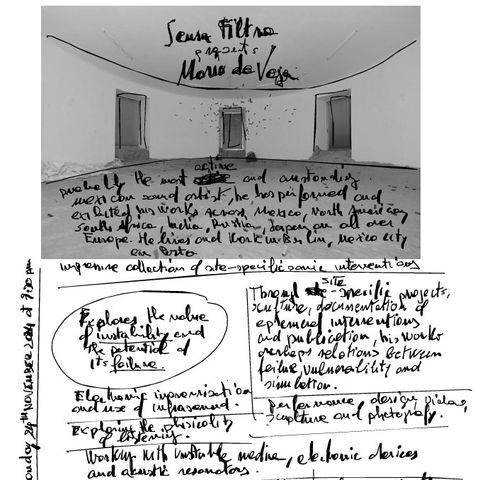 Senza Filtro
presents
Mario de Vega
probably the most active and outstanding
mexican sound artist, he has performed and
exhibited his works across, Mexico, North America,
South Africa, India, Russia, Japan an all over
Europe. He lives and work in Berlin, Mexico city
an Porto
impressive collection of site-specific sonic interventions
Explores the value
of instability and
the potential of
its failure.
Through site-specific projects,
sculpture, documentation of
ephemeral interventions
and publication, his works
develops relations between
failure, vulnerability and
simulation.
Electronic improvisation
and use of infrasound.
Exploring the phisicality
of listening.
performance, design, video,
sculpture and photography.
Working with unstable media, electronic devices
and acoustic resonators.
NOVEMBER 2024 at 7:30 pm